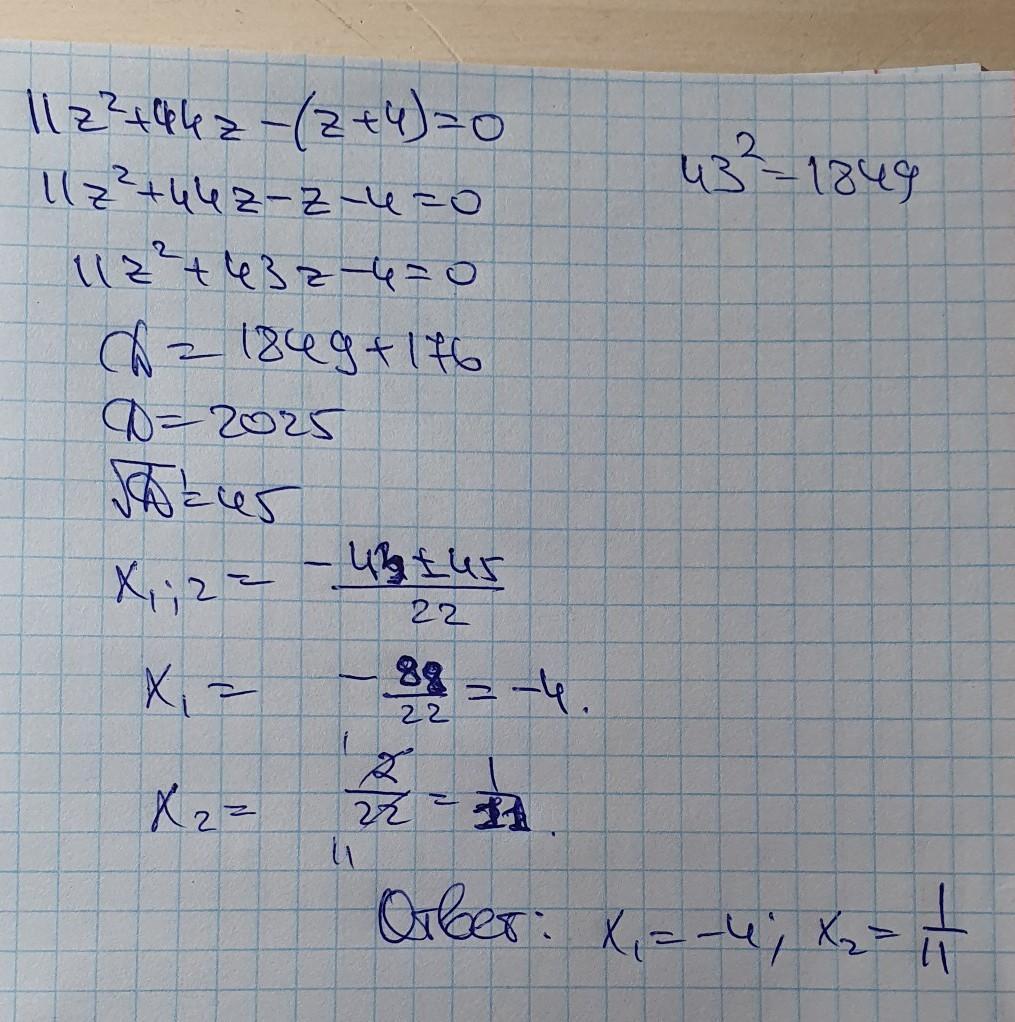 11z²+44z-(z+4)=0
43²=1849
11z²+44z-z-4=0
11z²+43z-4=0
D = 1849+176
D = 2025
√D = 45
x₁;₂ = -43±45/22
x₁ = -88/22 = -4.
x₂ = 2/22 = 1/11.
1
11
Ответ: x₁=-4; x₂=1/11